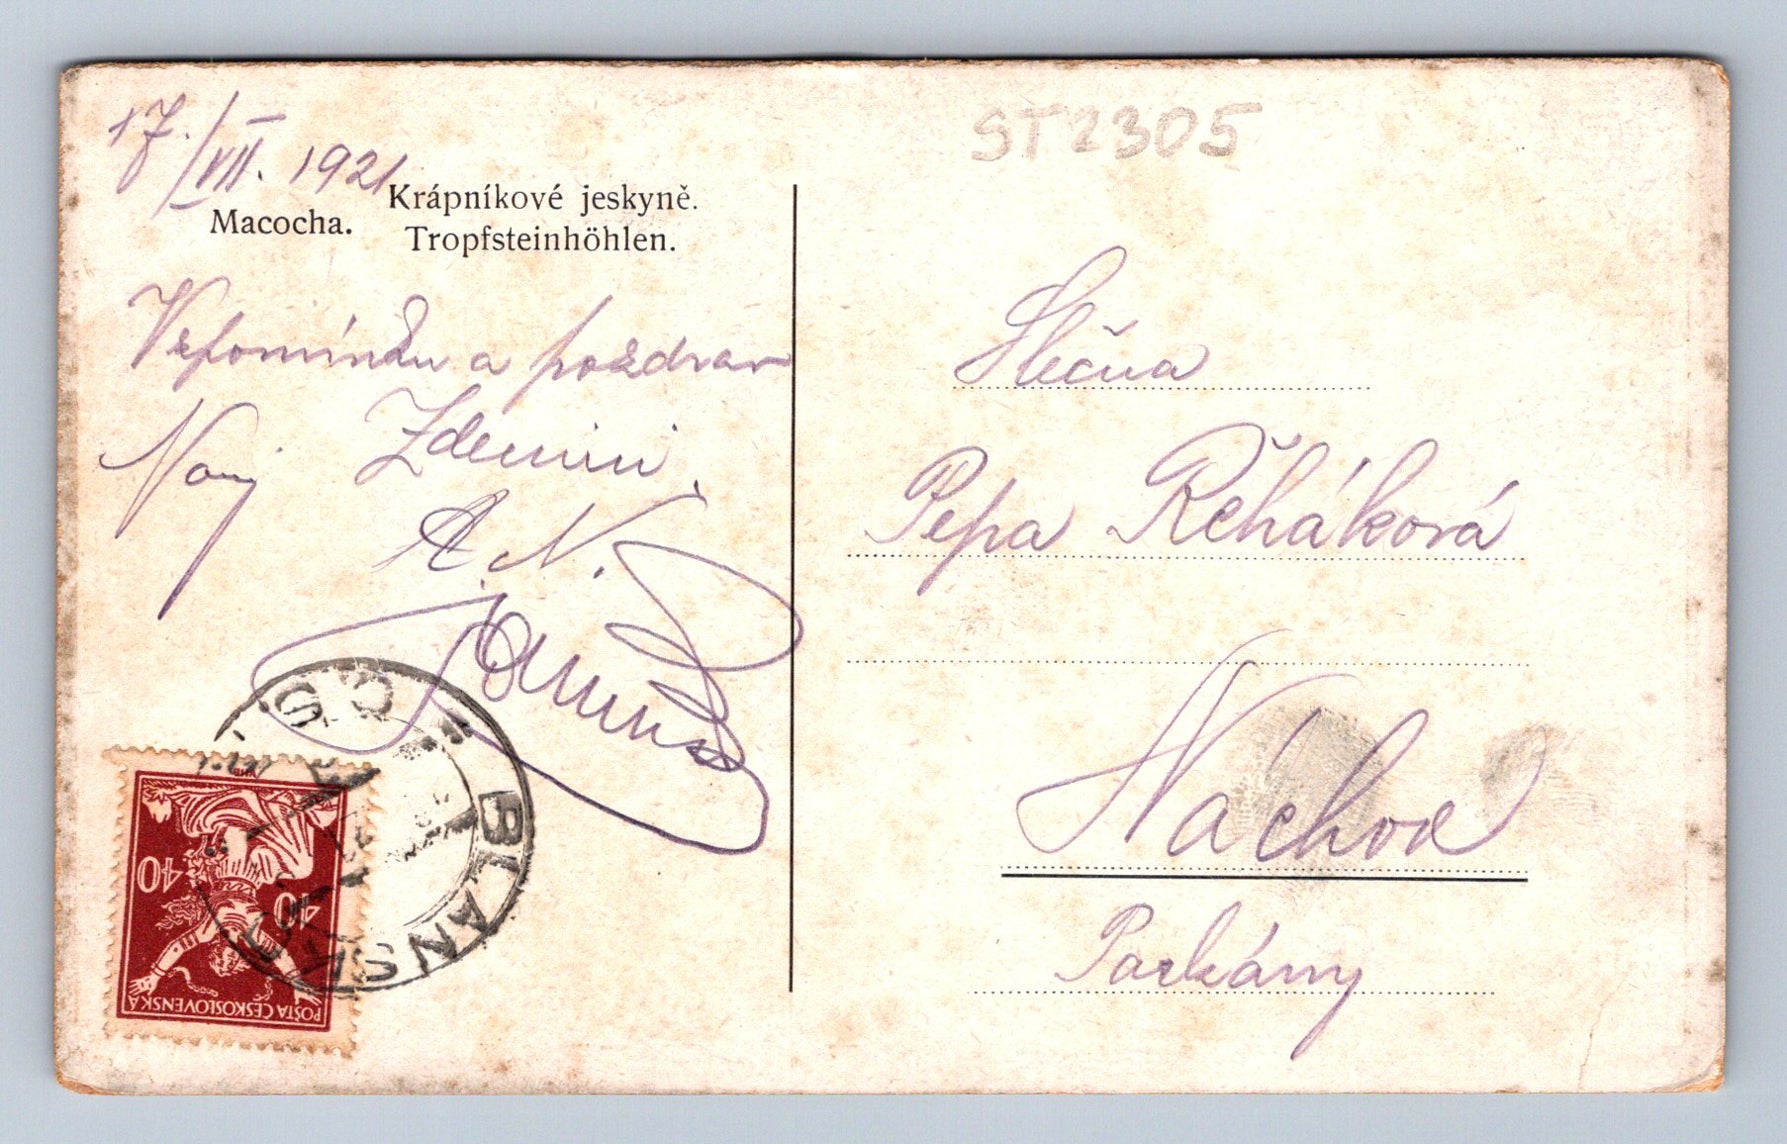 17./VII. 1921
ST2305
Krápníkové jeskyně.
Macocha.
Tropfsteinhöhlen.
Vzpomínku a pozdrav
A. N.
Slečna
Pepa Řeháková
Náchod
Parkány
BLANSKO
ČS
40
40
POŠTA ČESKOSLOVENSKÁ